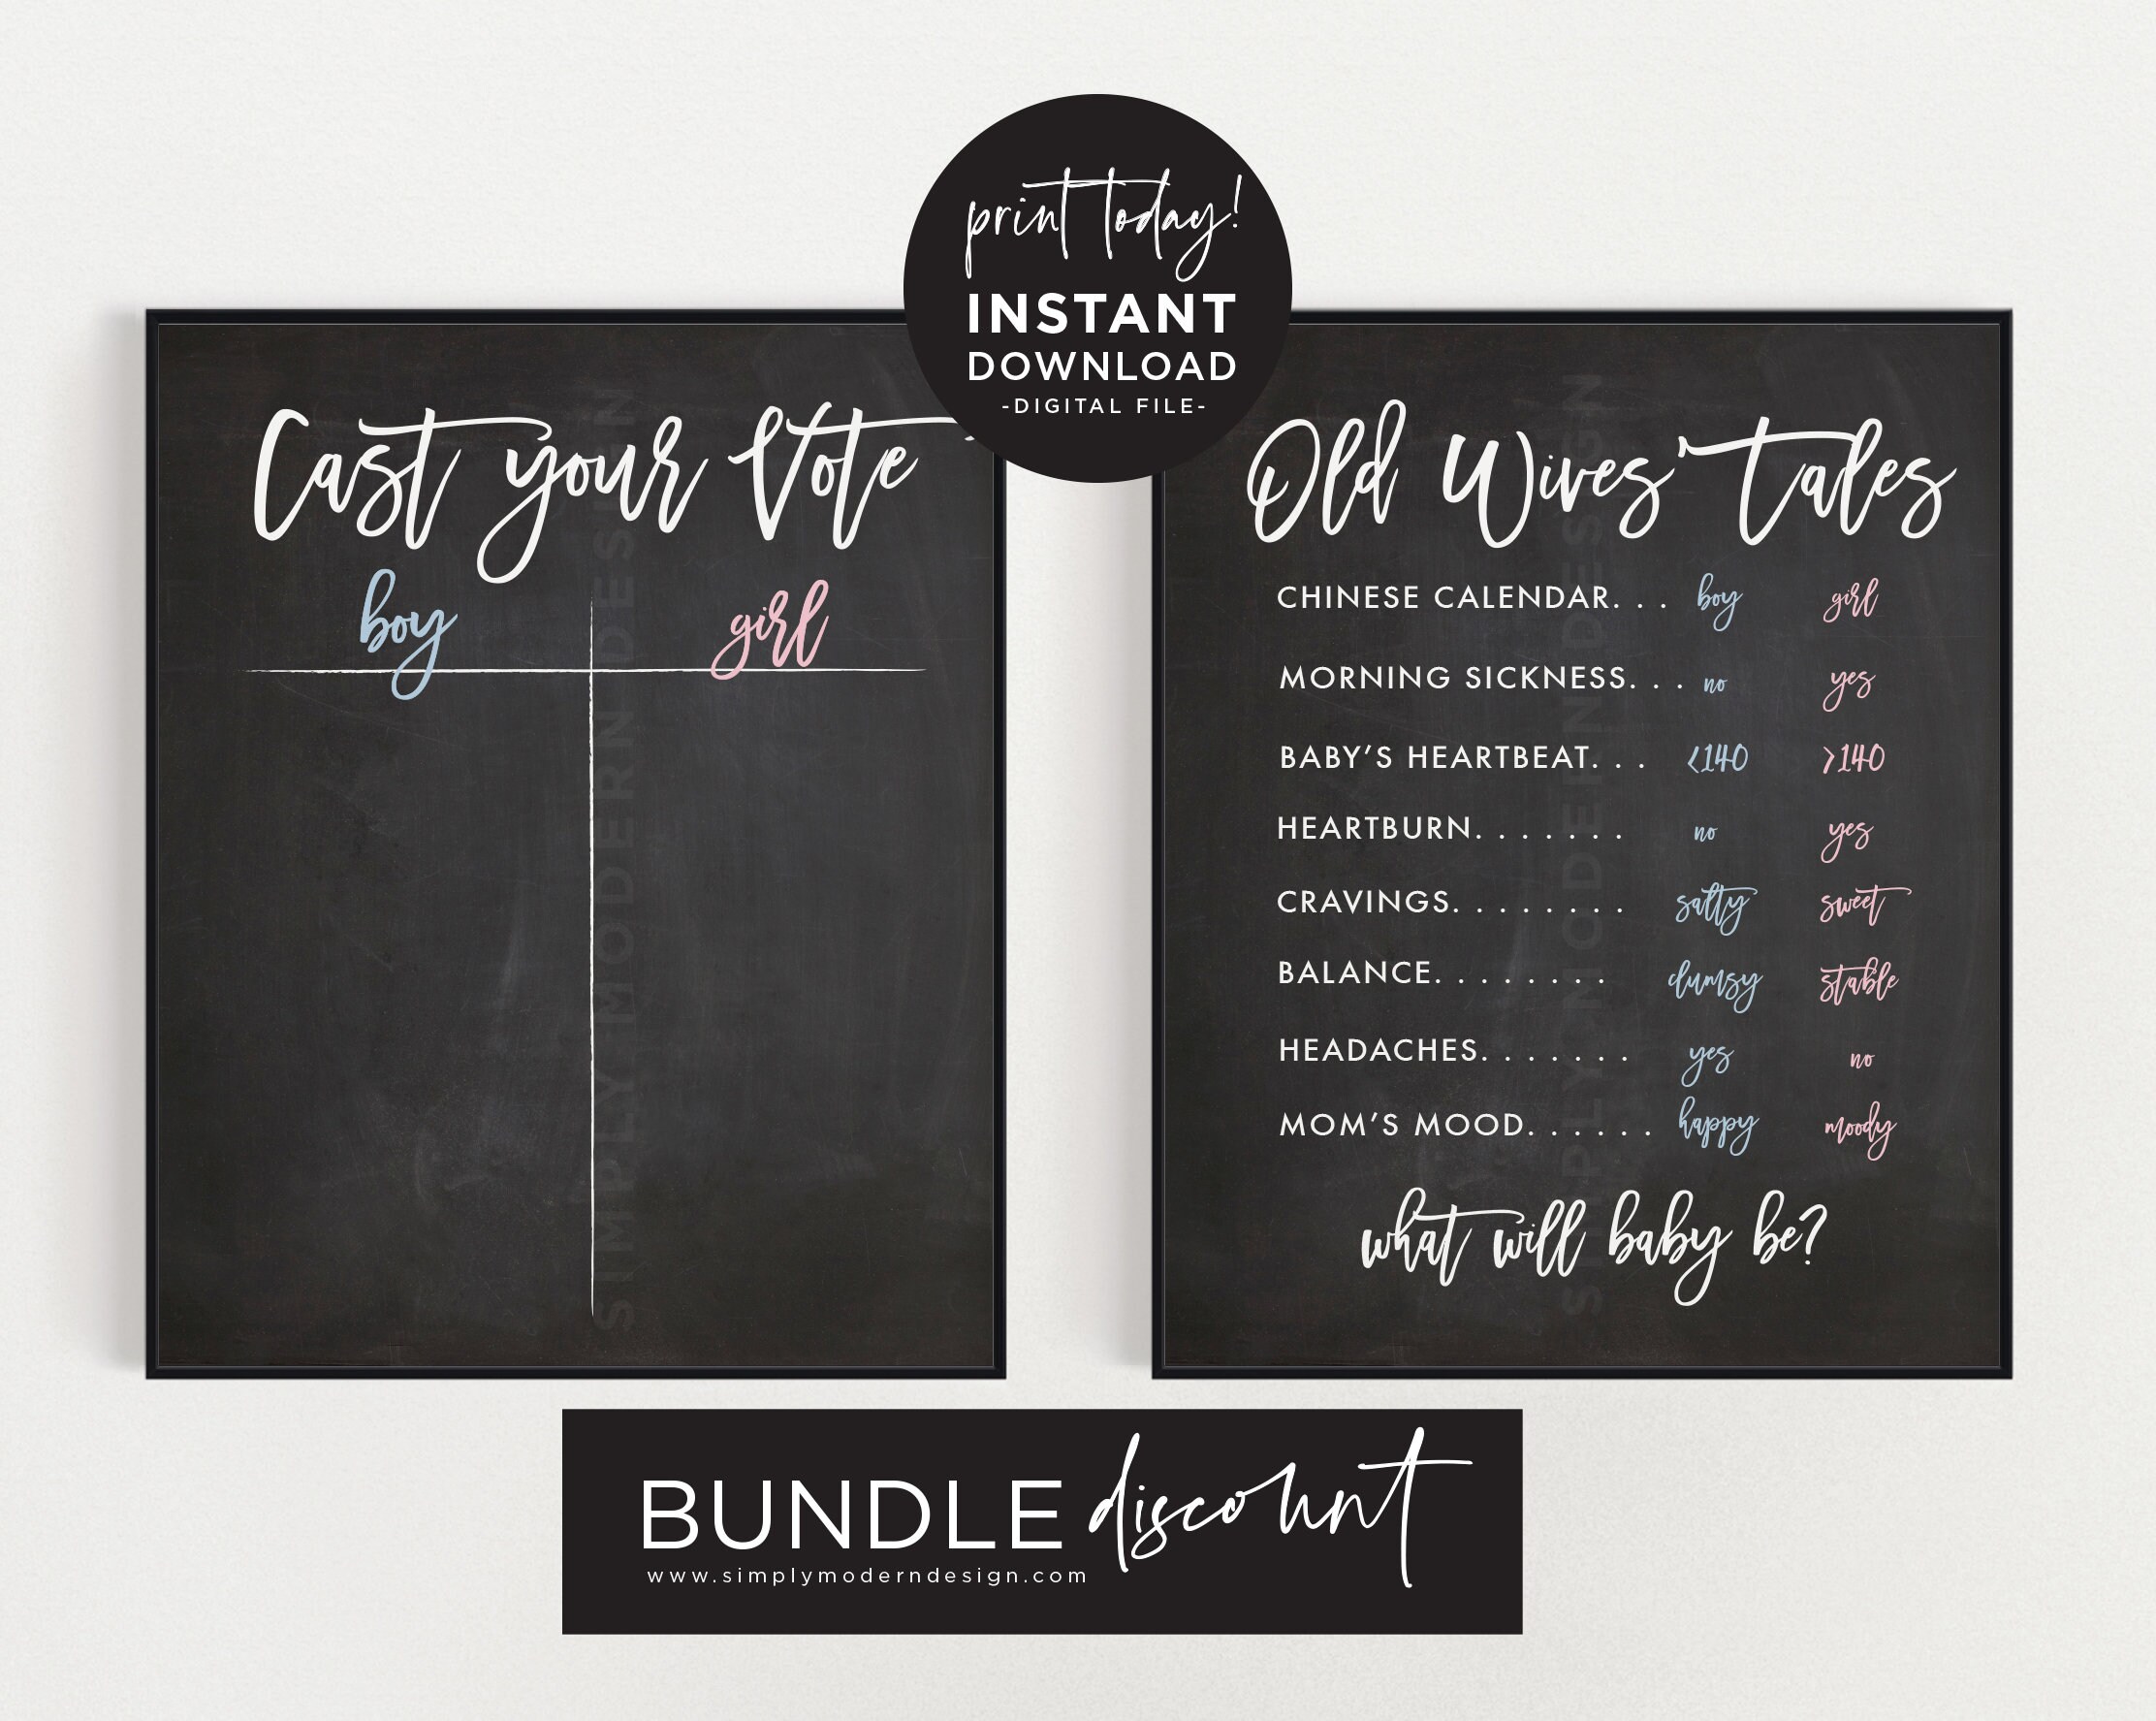 print today!
INSTANT
DOWNLOAD
-DIGITAL FILE-
Cast your Vote
boy girl
SIMPLY MODERN DESIGN
Old Wives' Tales
CHINESE CALENDAR. . . boy girl
MORNING SICKNESS. . . no yes
BABY'S HEARTBEAT. . . <140 >140
HEARTBURN. . . . . . . no yes
CRAVINGS. . . . . . . . salty sweet
BALANCE. . . . . . . . clumsy stable
HEADACHES. . . . . . . yes no
MOM'S MOOD. . . . . . happy moody
what will baby be?
SIMPLY MODERN DESIGN
BUNDLE discount
www.simplymoderndesign.com